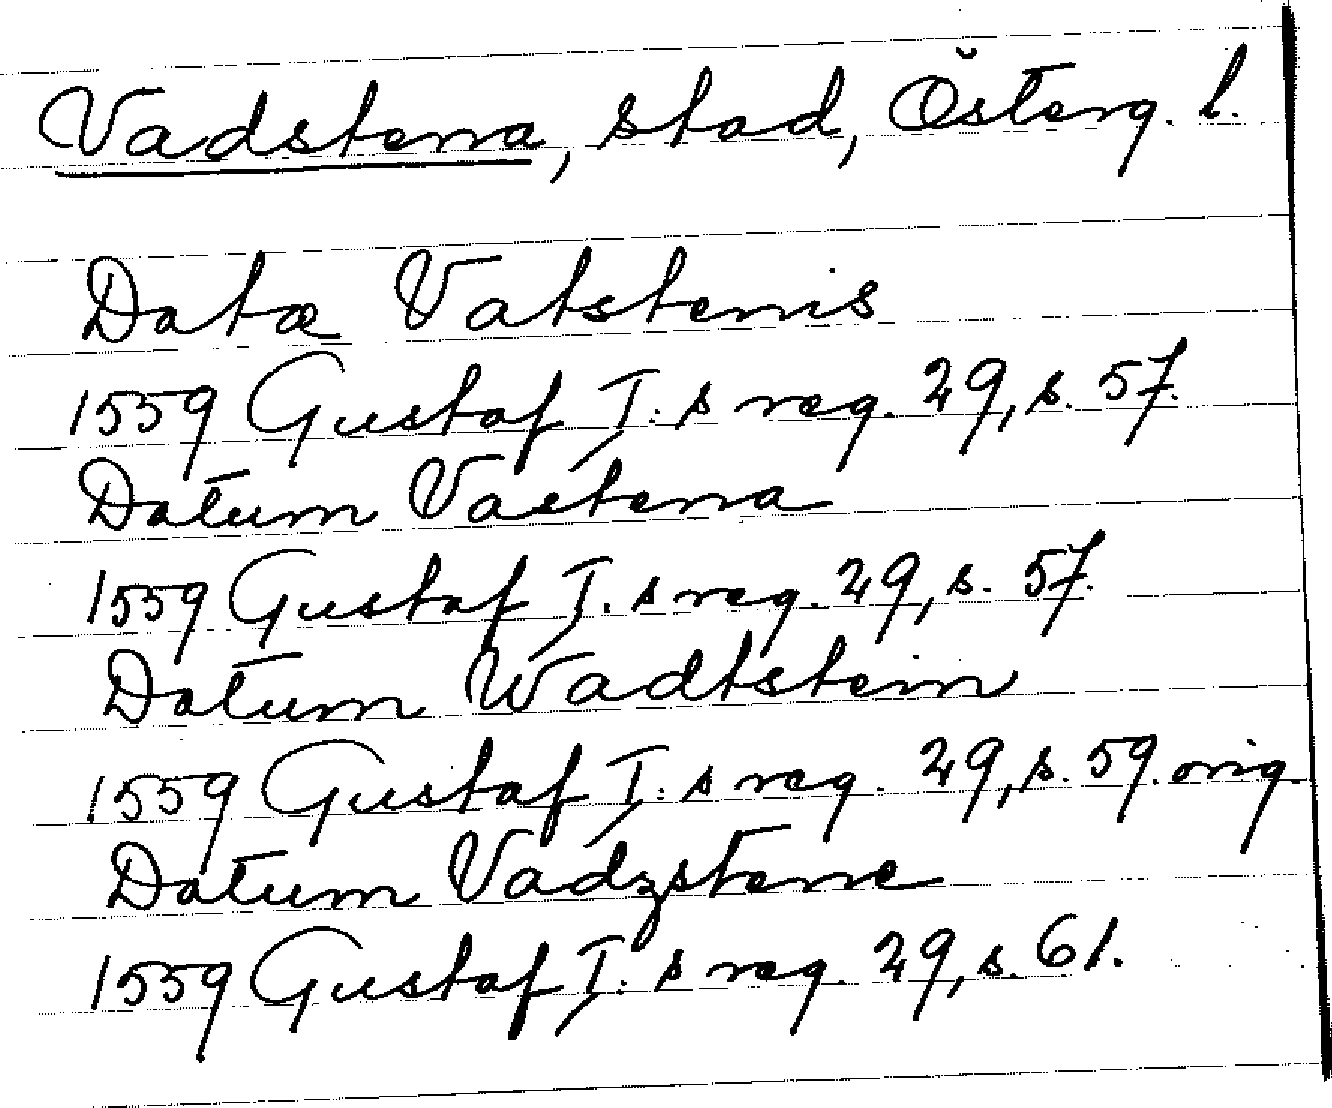 Vadstena, stad, Österg. l.
Datæ Vatstenis
1559 Gustaf I:s reg. 29, s. 57.
Datum Vastena
1559 Gustaf I:s reg. 29, s. 57.
Datum Wadtstein
1559 Gustaf I:s reg. 29, s. 59. orig.
Datum Vadzstene
1559 Gustaf I:s reg. 29, s. 61.